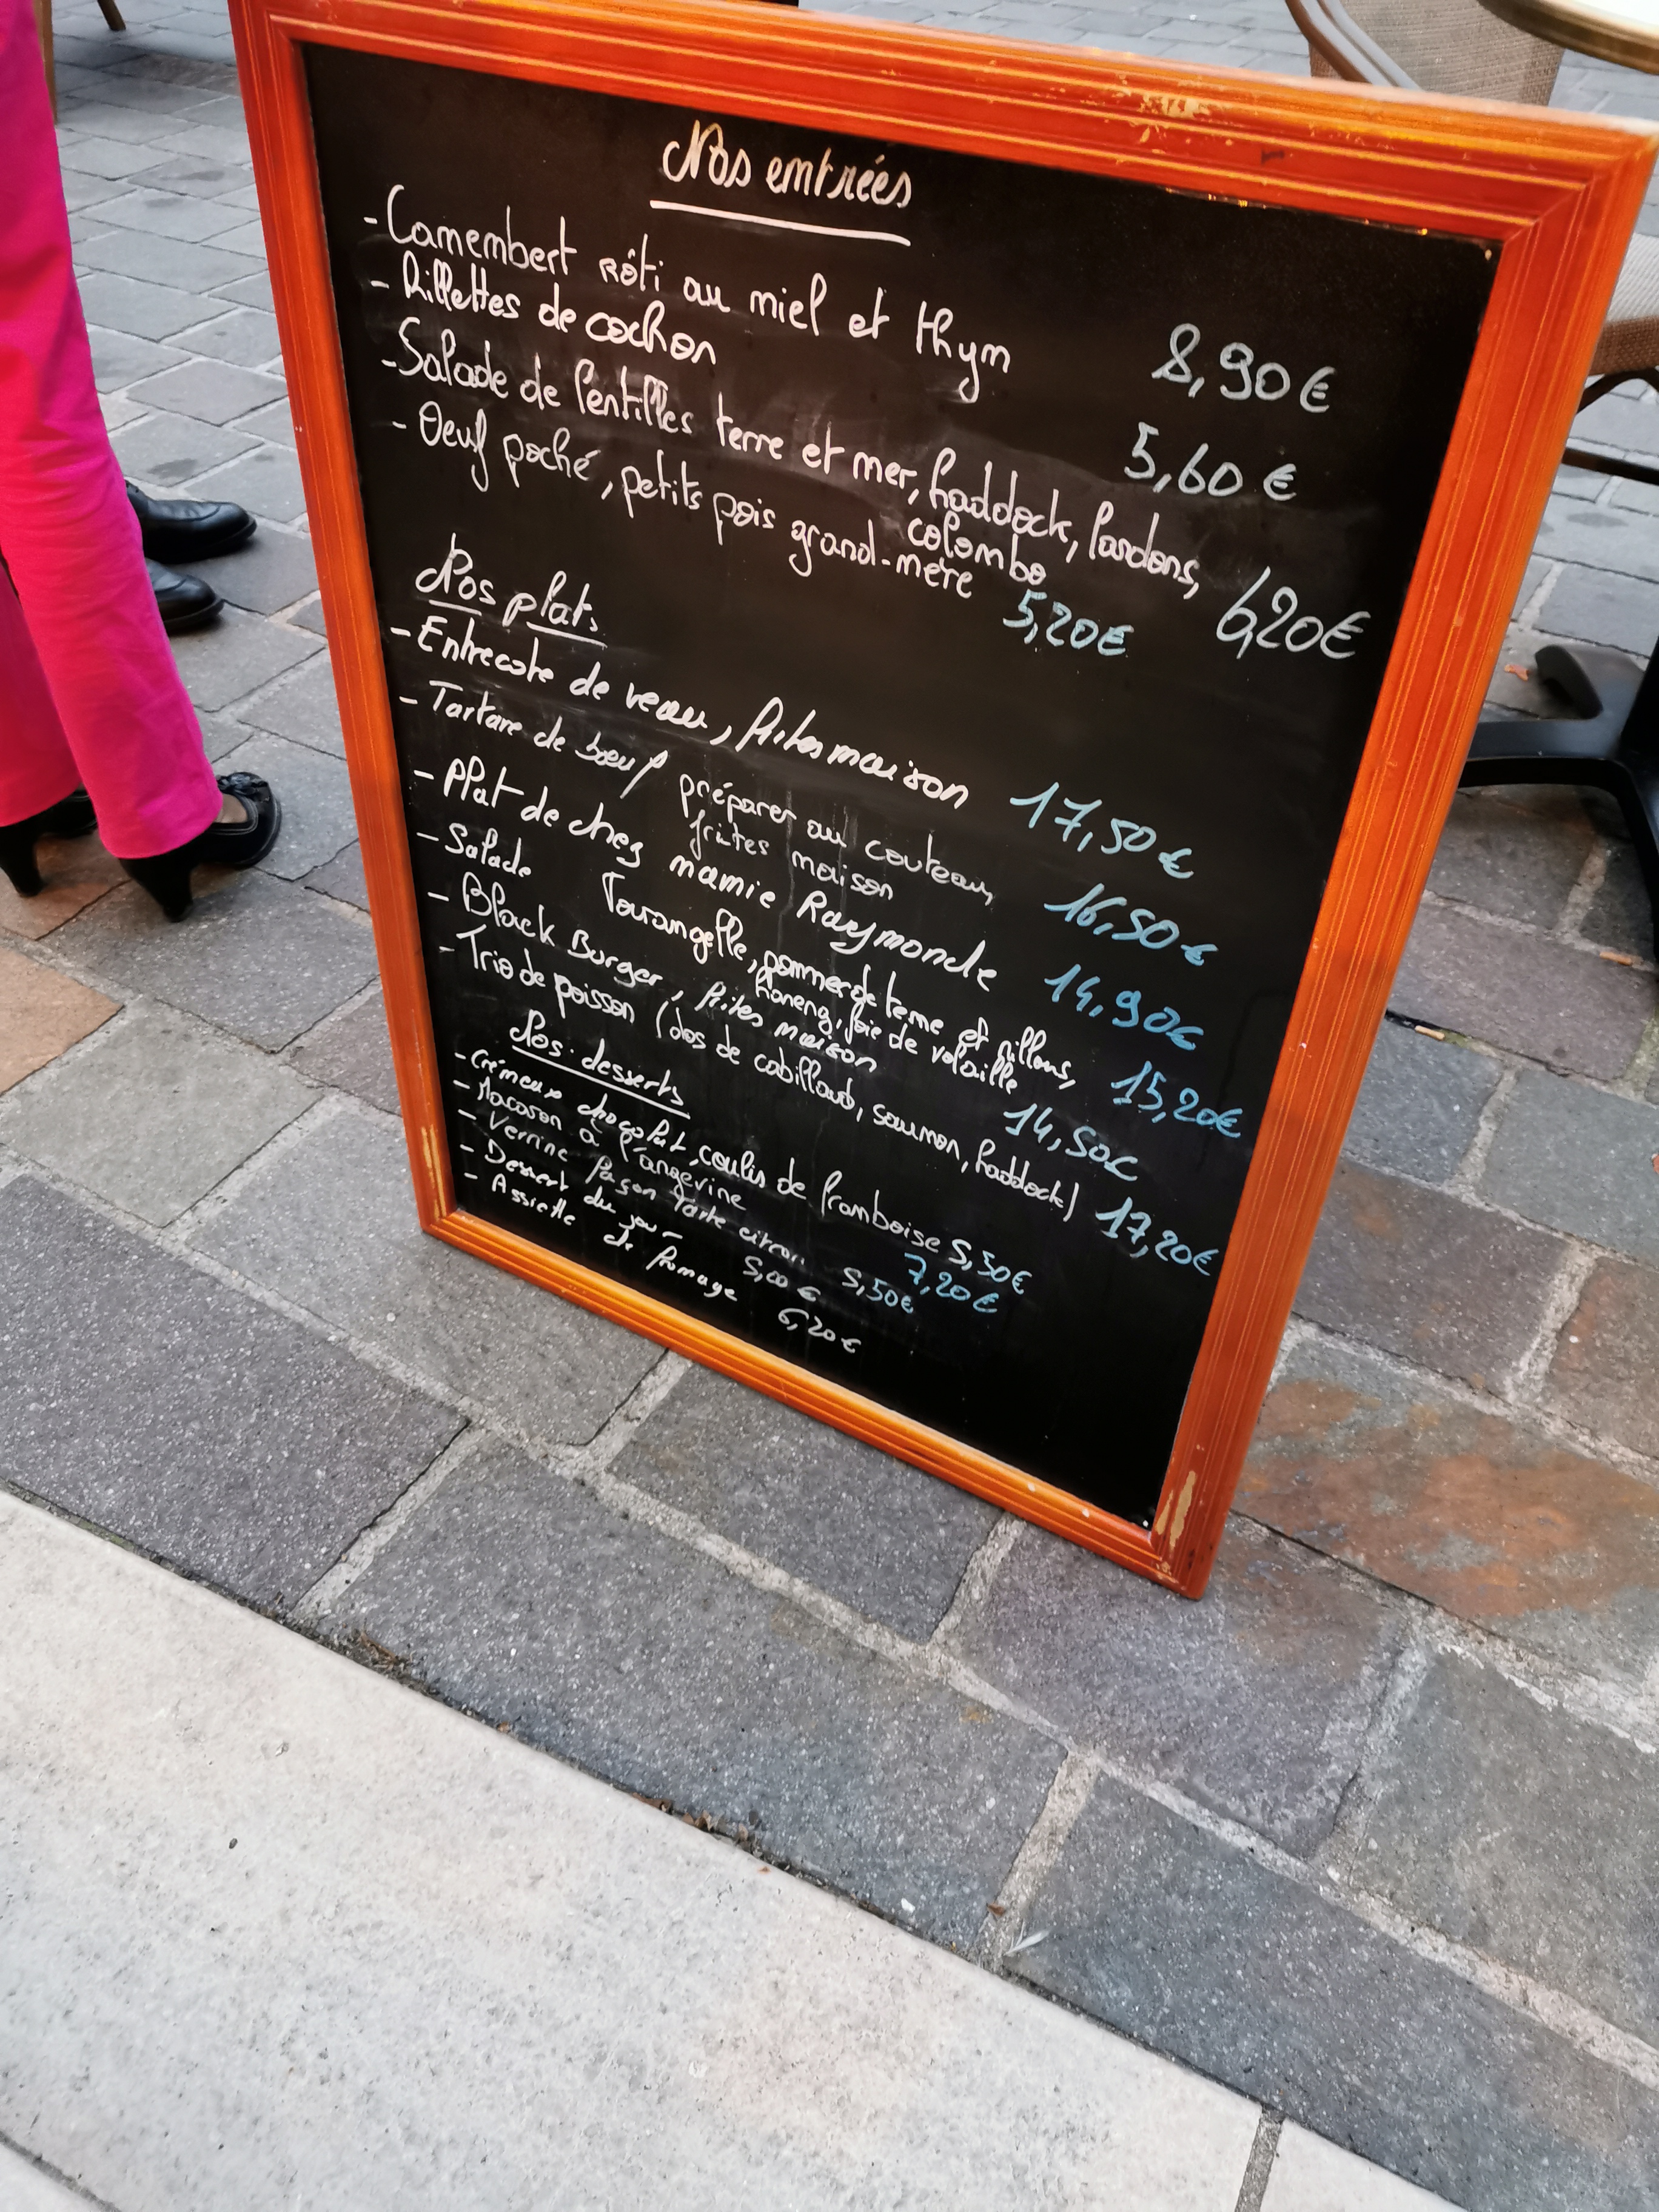 Nos entrées
- Camembert rôti au miel et thym 8,90€
- Rillettes de cochon 5,60€
- Salade de lentilles terre et mer, haddock, lardons,
colombo 6,20€
- Oeuf poché, petits pois grand-mère 5,20€
Nos plats
- Entrecote de veau, frites maison 17,50€
- Tartare de boeuf préparer au couteau,
frites maison 16,50€
- Plat de chez mamie Raymonde 14,90€
- Salade Tourangelle, pommes de terre et rillons,
hareng, foie de volaille 15,20€
- Black Burger, frites maison 14,50€
- Trio de poisson (dos de cabillaud, saumon, haddock) 17,20€
Nos desserts
- Crémeux chocolat, coulis de framboise 5,50€
- Macaron à l'angevine 7,20€
- Verrine façon tarte citron 5,50€
- Dessert du jour 5,00€
- Assiette de fromage 6,20€